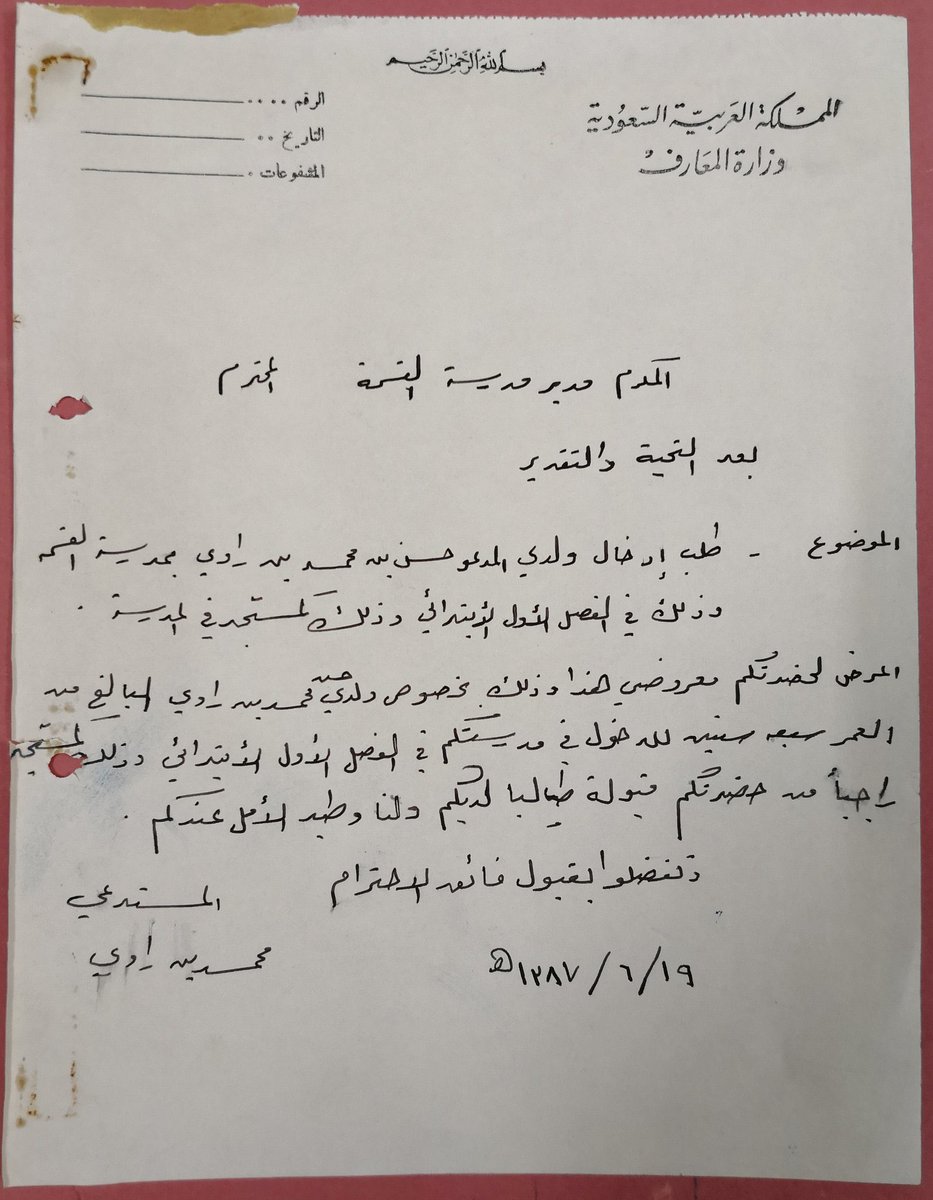 بسم الله الرحمن الرحيم
المملكة العربية السعودية
وزارة المعارف
الرقم ....
التاريخ ..
المشفوعات .
المكرم مدير مدرسة القسمة المحترم
بعد التحية والتقدير
الموضوع - طلب إدخال ولدي المدعو حسن بن محمد بن راوي بمدرسة القسمه
وذلك في الفصل الأول الأبتدائي وذلك كمستجد في المدرسة .
اعرض لحضرتكم معروضي هذا وذلك بخصوص ولدي حسن محمد بن راوي البالغ من
العمر سبعه سنين للدخول في مدرستكم في الفصل الأول الأبتدائي وذلك كمستجد
راجياً من حضرتكم قبولة طالبا لديكم ولنا وطيد الأمل عندكم .
وتفضلوا بقبول فائق الاحترام
المستدعي
محمد بن راوي
١٩/٦/١٣٨٧ه